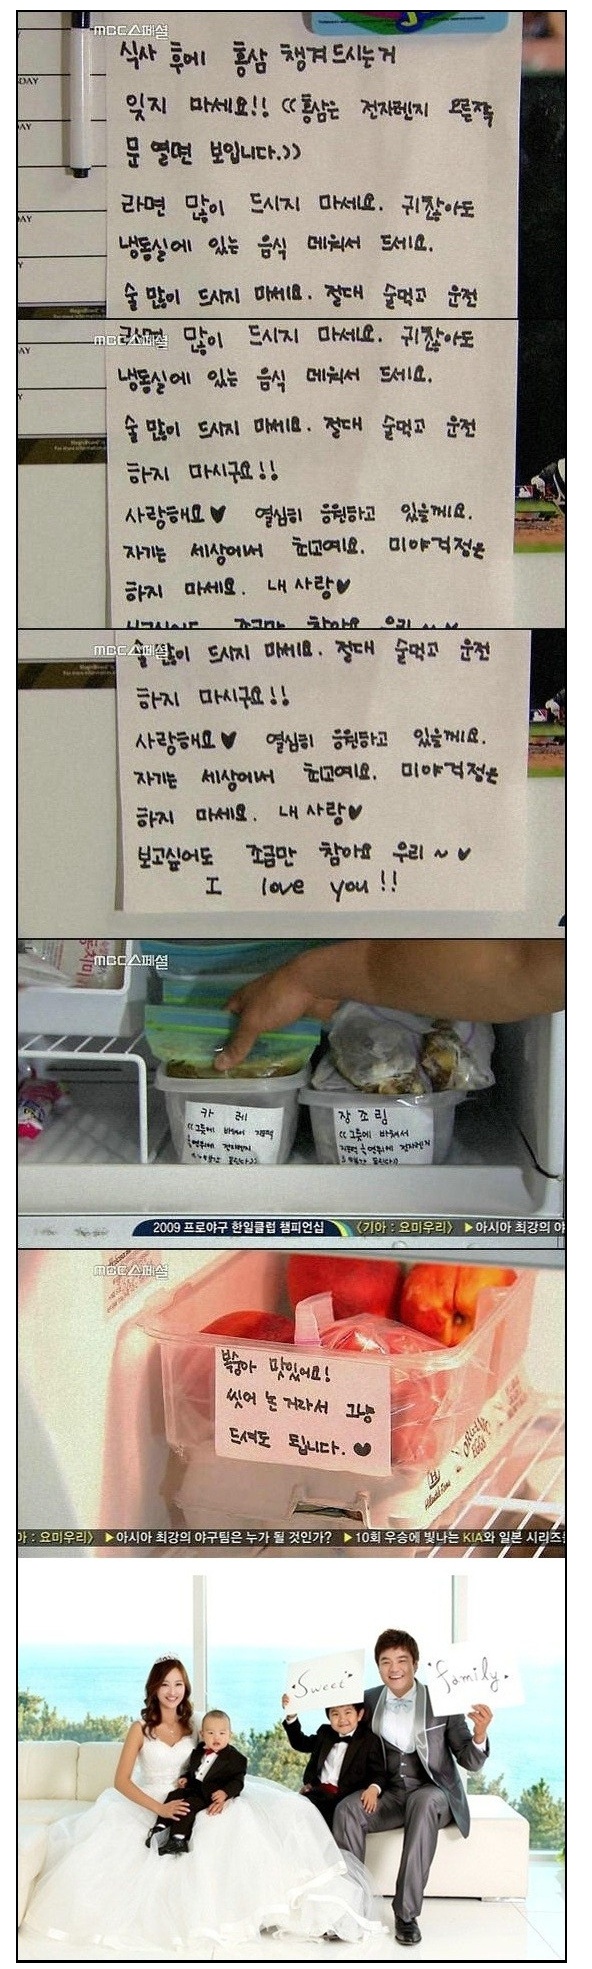 MBC스페셜
식사 후에 홍삼 챙겨드시는거
잊지 마세요!! ((홍삼은 전자렌지 오른쪽
문 열면 보입니다.))
라면 많이 드시지 마세요. 귀찮아도
냉동실에 있는 음식 데워서 드세요.
술 많이 드시지 마세요. 절대 술먹고 운전
MBC스페셜
라면 많이 드시지 마세요. 귀찮아도
냉동실에 있는 음식 데워서 드세요.
술 많이 드시지 마세요. 절대 술먹고 운전
하지 마시구요!!
사랑해요♥ 열심히 응원하고 있을께요.
자기는 세상에서 최고예요. 미야걱정은
하지 마세요. 내 사랑♥
보고싶어도 조금만 참아요 우리~♥
MBC스페셜
술 많이 드시지 마세요. 절대 술먹고 운전
하지 마시구요!!
사랑해요♥ 열심히 응원하고 있을께요.
자기는 세상에서 최고예요. 미야걱정은
하지 마세요. 내 사랑♥
보고싶어도 조금만 참아요 우리~♥
I love you!!
MBC스페셜
카레
((그릇에 바꿔서
전자렌지
장조림
((그릇에 바꿔서
전자렌지
2009 프로야구 한일클럽 챔피언십 〈기아 : 요미우리〉 ▶아시아 최강의 야
MBC스페셜
복숭아 맛있어요!
씻어 논 거라서 그냥
드셔도 됩니다.♥
ORGANIC
EGGS
아 : 요미우리〉 ▶아시아 최강의 야구팀은 누가 될 것인가? ▶10회 우승에 빛나는 KIA와 일본 시리즈
Sweet
family